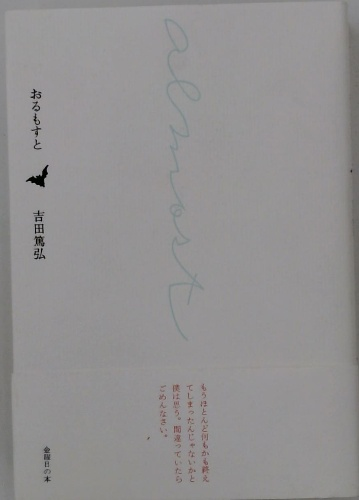 almost
おるもすと
吉田篤弘
もうほとんど何もかも終え
てしまったんじゃないかと
僕は思う。間違っていたら
ごめんなさい。
金曜日の本